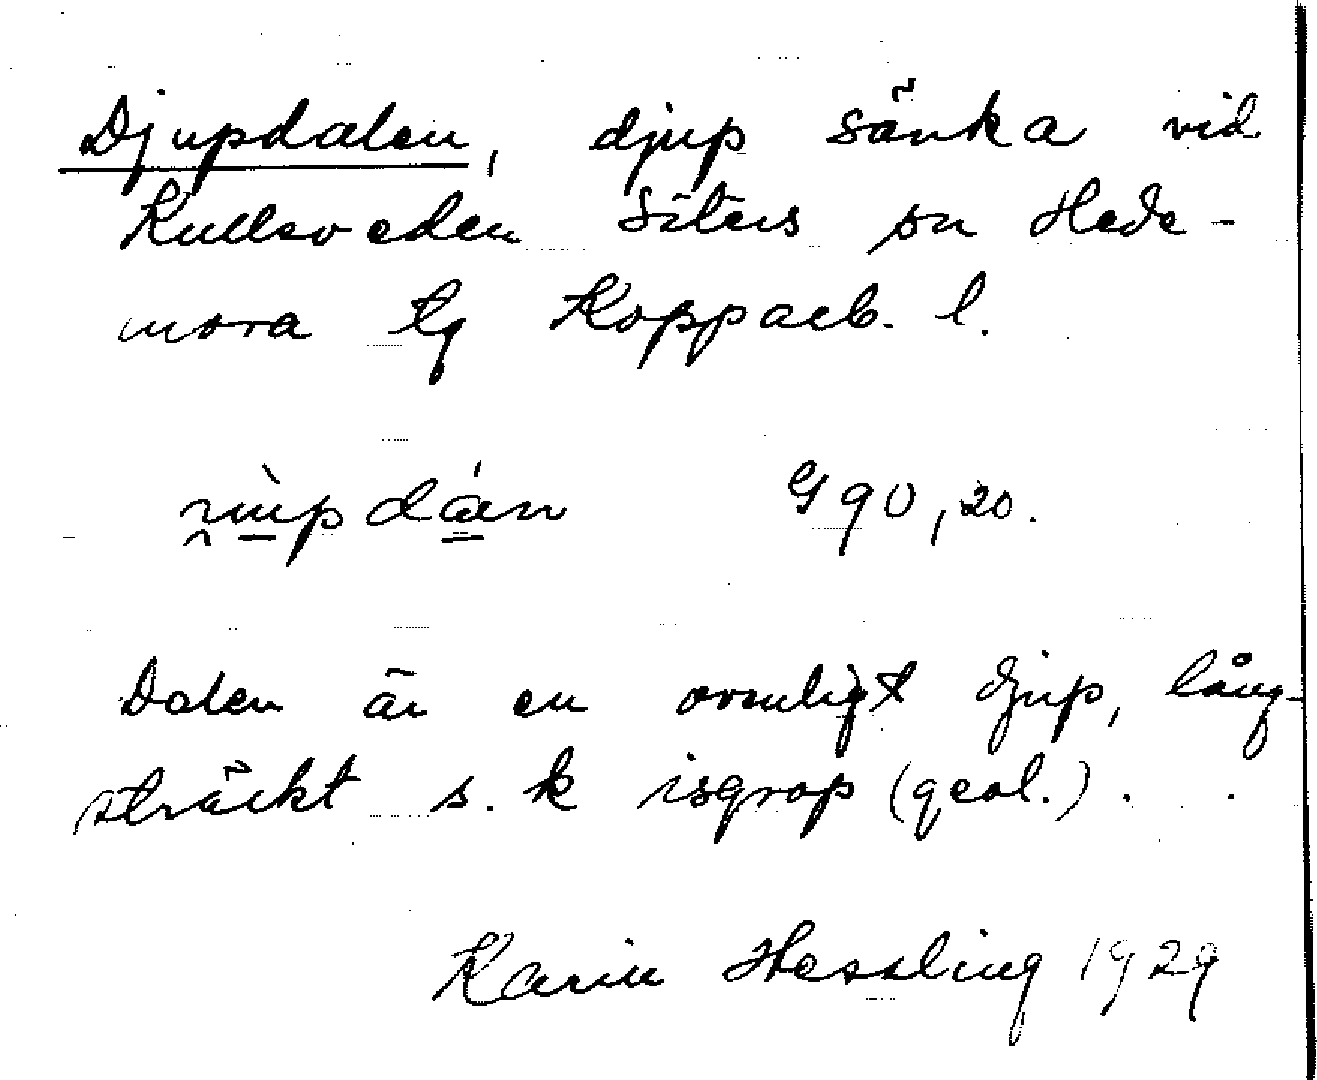 Djupdalen, djup sänka vid
Kullsveden Säters sn Hede-
mora tg Kopparb. l.
G 90, 20.
Dalen är en ovanligt djup, lång-
sträckt s.k isgrop (geol.).
Karin Hessling 1929